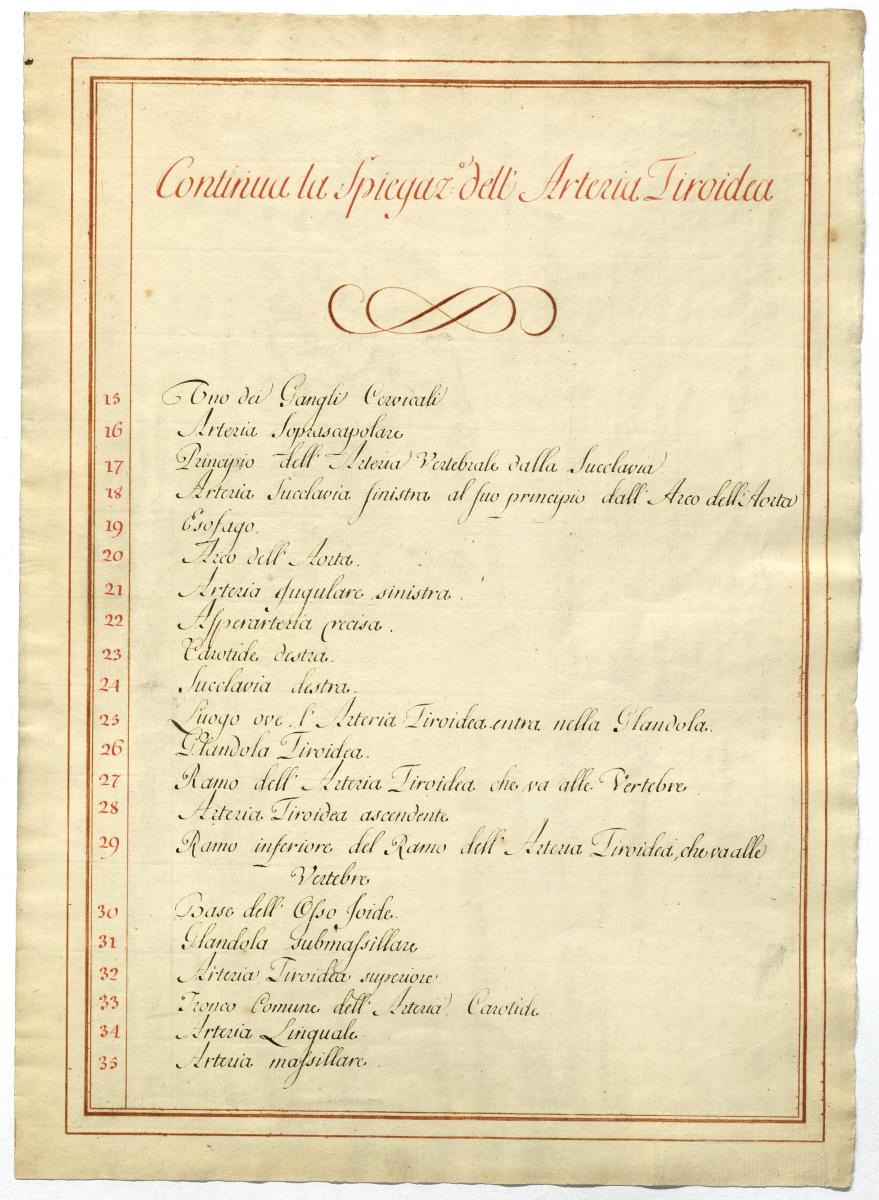 Continua la Spiegaz.º dell' Arteria Tiroidea
15 Uno dei Gangli Cervicali
16 Arteria Soprascapolare
17 Principio dell' Arteria Vertebrale dalla Succlavia
18 Arteria Succlavia sinistra al suo principio dall' Arco dell' Aorta
19 Esofago.
20 Arco dell' Aorta.
21 Arteria jugulare sinistra.
22 Asperarteria recisa.
23 Carotide destra.
24 Succlavia destra.
25 Luogo ove l'Arteria Tiroidea entra nella Glandola.
26 Glandola Tiroidea.
27 Ramo dell' Arteria Tiroidea che va alle Vertebre.
28 Arteria Tiroidea ascendente
29 Ramo inferiore del Ramo dell' Arteria Tiroidea, che va alle
Vertebre
30 Base dell' Osso Joide.
31 Glandola submassillare
32 Arteria Tiroidea superiore.
33 Tronco Comune dell' Arteria Carotide.
34 Arteria Linguale.
35 Arteria massillare.